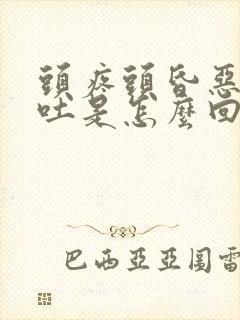 頭疼頭昏惡
吐是怎麼回
巴西亞亞圖雷